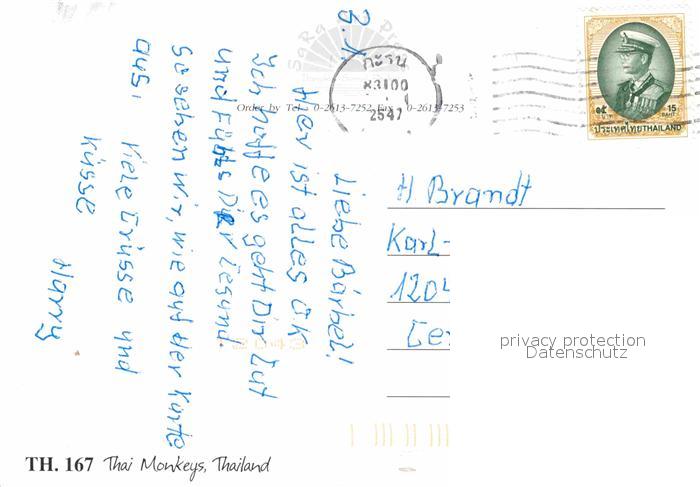 B. X.
Liebe Bärbel!
Hier ist alles OK
Ich hoffe es geht Dir Gut
und Fühls Dir Gesund.
So sehen wir, wie auf der Karte
aus.
Viele Grüsse und
Küsse
Harry
Order by Tel. 0-2613-7252 Fax. 0-2613-7253
กะรน
83100
2547
๑๕ บาท
15 BAHT
ประเทศไทย THAILAND
H Brandt
Karl-
120
Ge
privacy protection
Datenschutz
12043
TH. 167 Thai Monkeys, Thailand